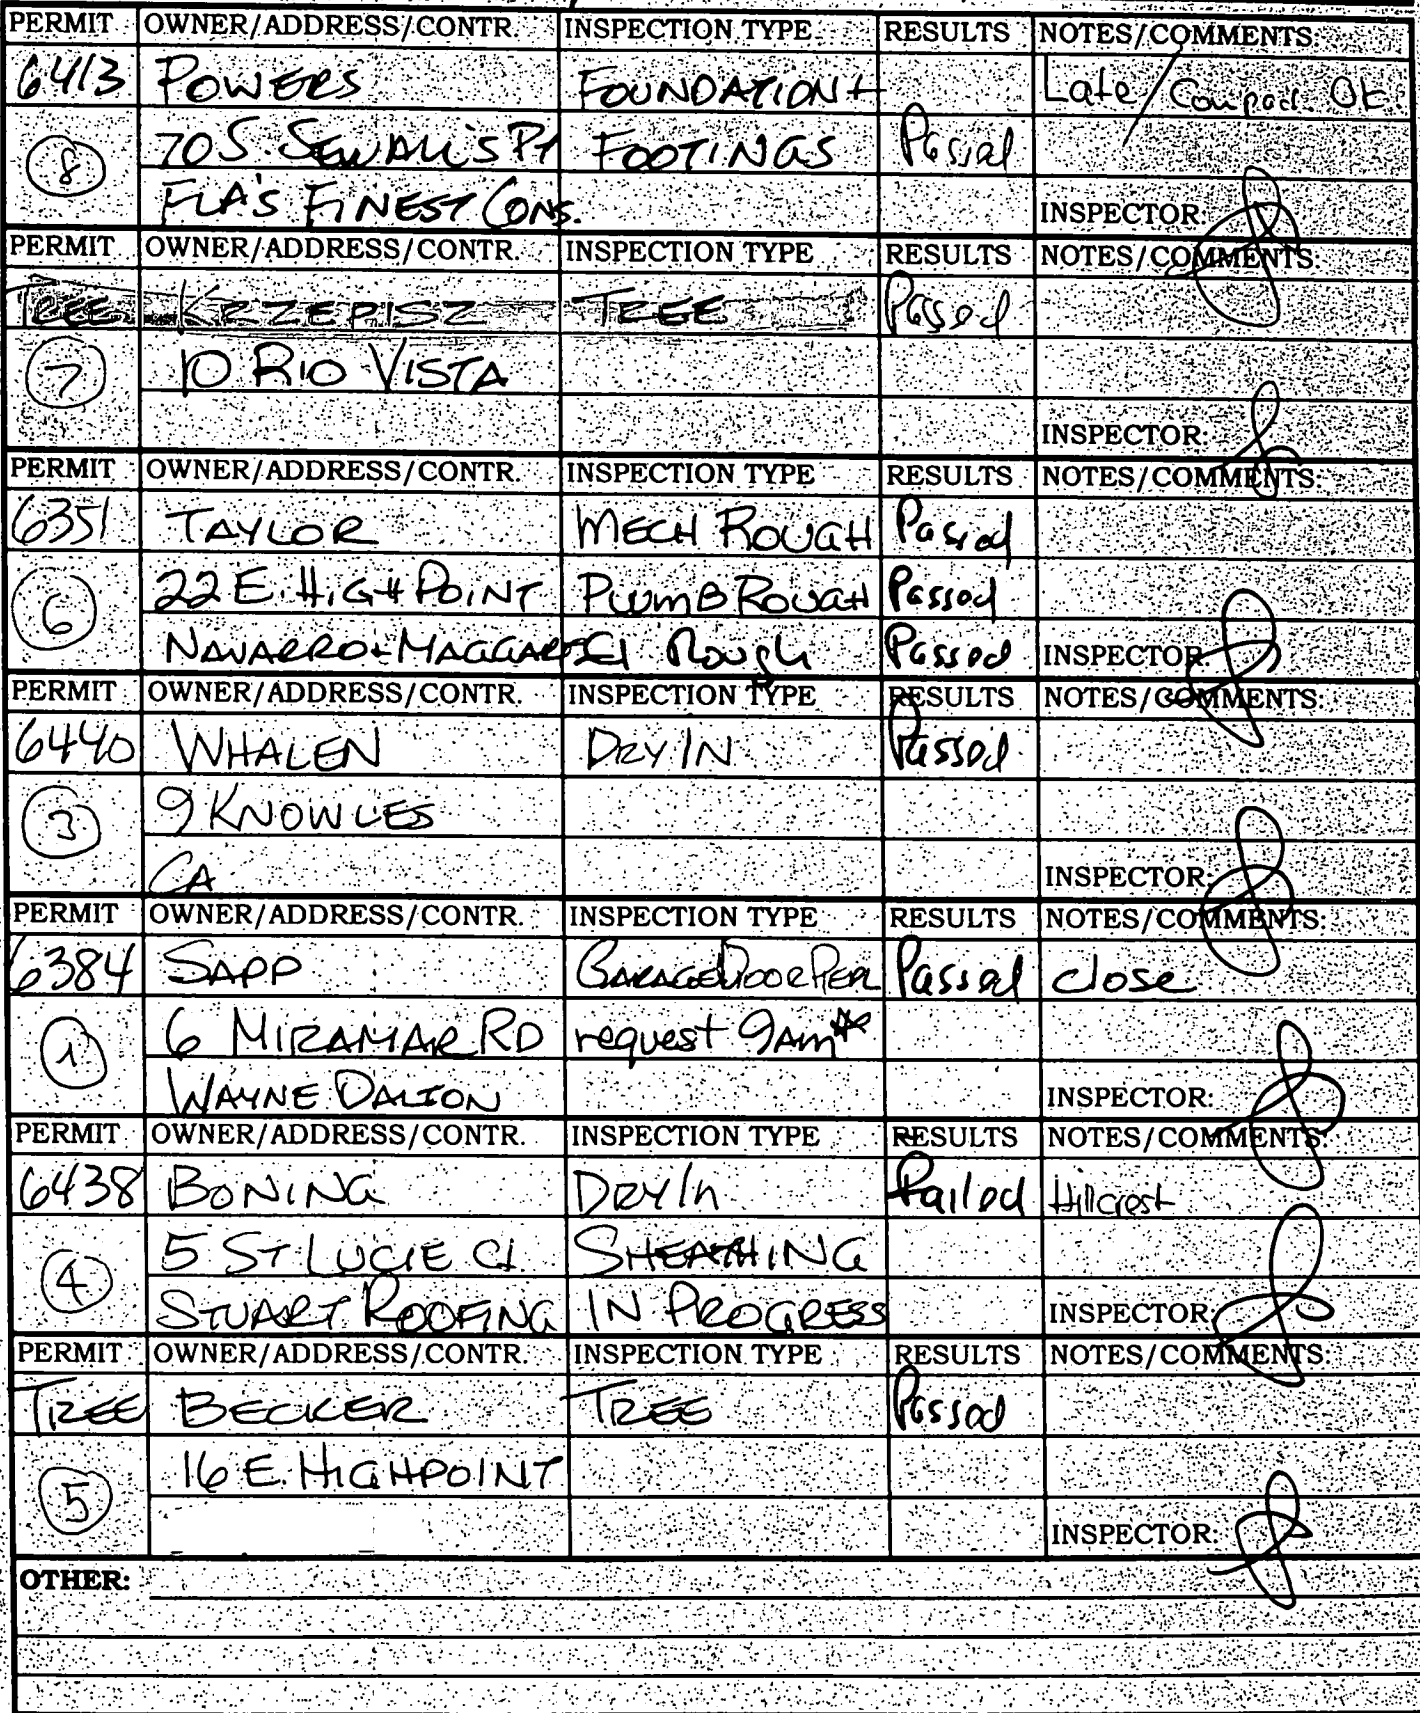 PERMIT OWNER/ADDRESS/CONTR. INSPECTION TYPE RESULTS NOTES/COMMENTS:
6413 POWERS FOUNDATION + Late/Compact. OK.
8 70 S. SEWALL'S PT FOOTINGS Passed
FLA'S FINEST CONS. INSPECTOR:
PERMIT OWNER/ADDRESS/CONTR. INSPECTION TYPE RESULTS NOTES/COMMENTS:
TREE KRZEPISZ TREE Passed
7 10 RIO VISTA
INSPECTOR:
PERMIT OWNER/ADDRESS/CONTR. INSPECTION TYPE RESULTS NOTES/COMMENTS:
6351 TAYLOR MECH ROUGH Passed
6 22 E. HIGH POINT PLUMB ROUGH Passed
NAVARRO + MAGGARD El Rough Passed INSPECTOR:
PERMIT OWNER/ADDRESS/CONTR. INSPECTION TYPE RESULTS NOTES/COMMENTS:
6440 WHALEN DRY IN Passed
3 9 KNOWLES
CA INSPECTOR:
PERMIT OWNER/ADDRESS/CONTR. INSPECTION TYPE RESULTS NOTES/COMMENTS:
6384 SAPP GARAGE DOOR Passed close
1 6 MIRAMAR RD request 9AM
WAYNE DALTON INSPECTOR:
PERMIT OWNER/ADDRESS/CONTR. INSPECTION TYPE RESULTS NOTES/COMMENTS:
6438 BONING DRY In Failed Hillcrest
4 5 ST LUCIE Ct. SHEATHING
STUART ROOFING IN PROGRESS INSPECTOR:
PERMIT OWNER/ADDRESS/CONTR. INSPECTION TYPE RESULTS NOTES/COMMENTS:
TREE BECKER TREE Passed
5 16 E. HIGHPOINT
INSPECTOR:
OTHER: